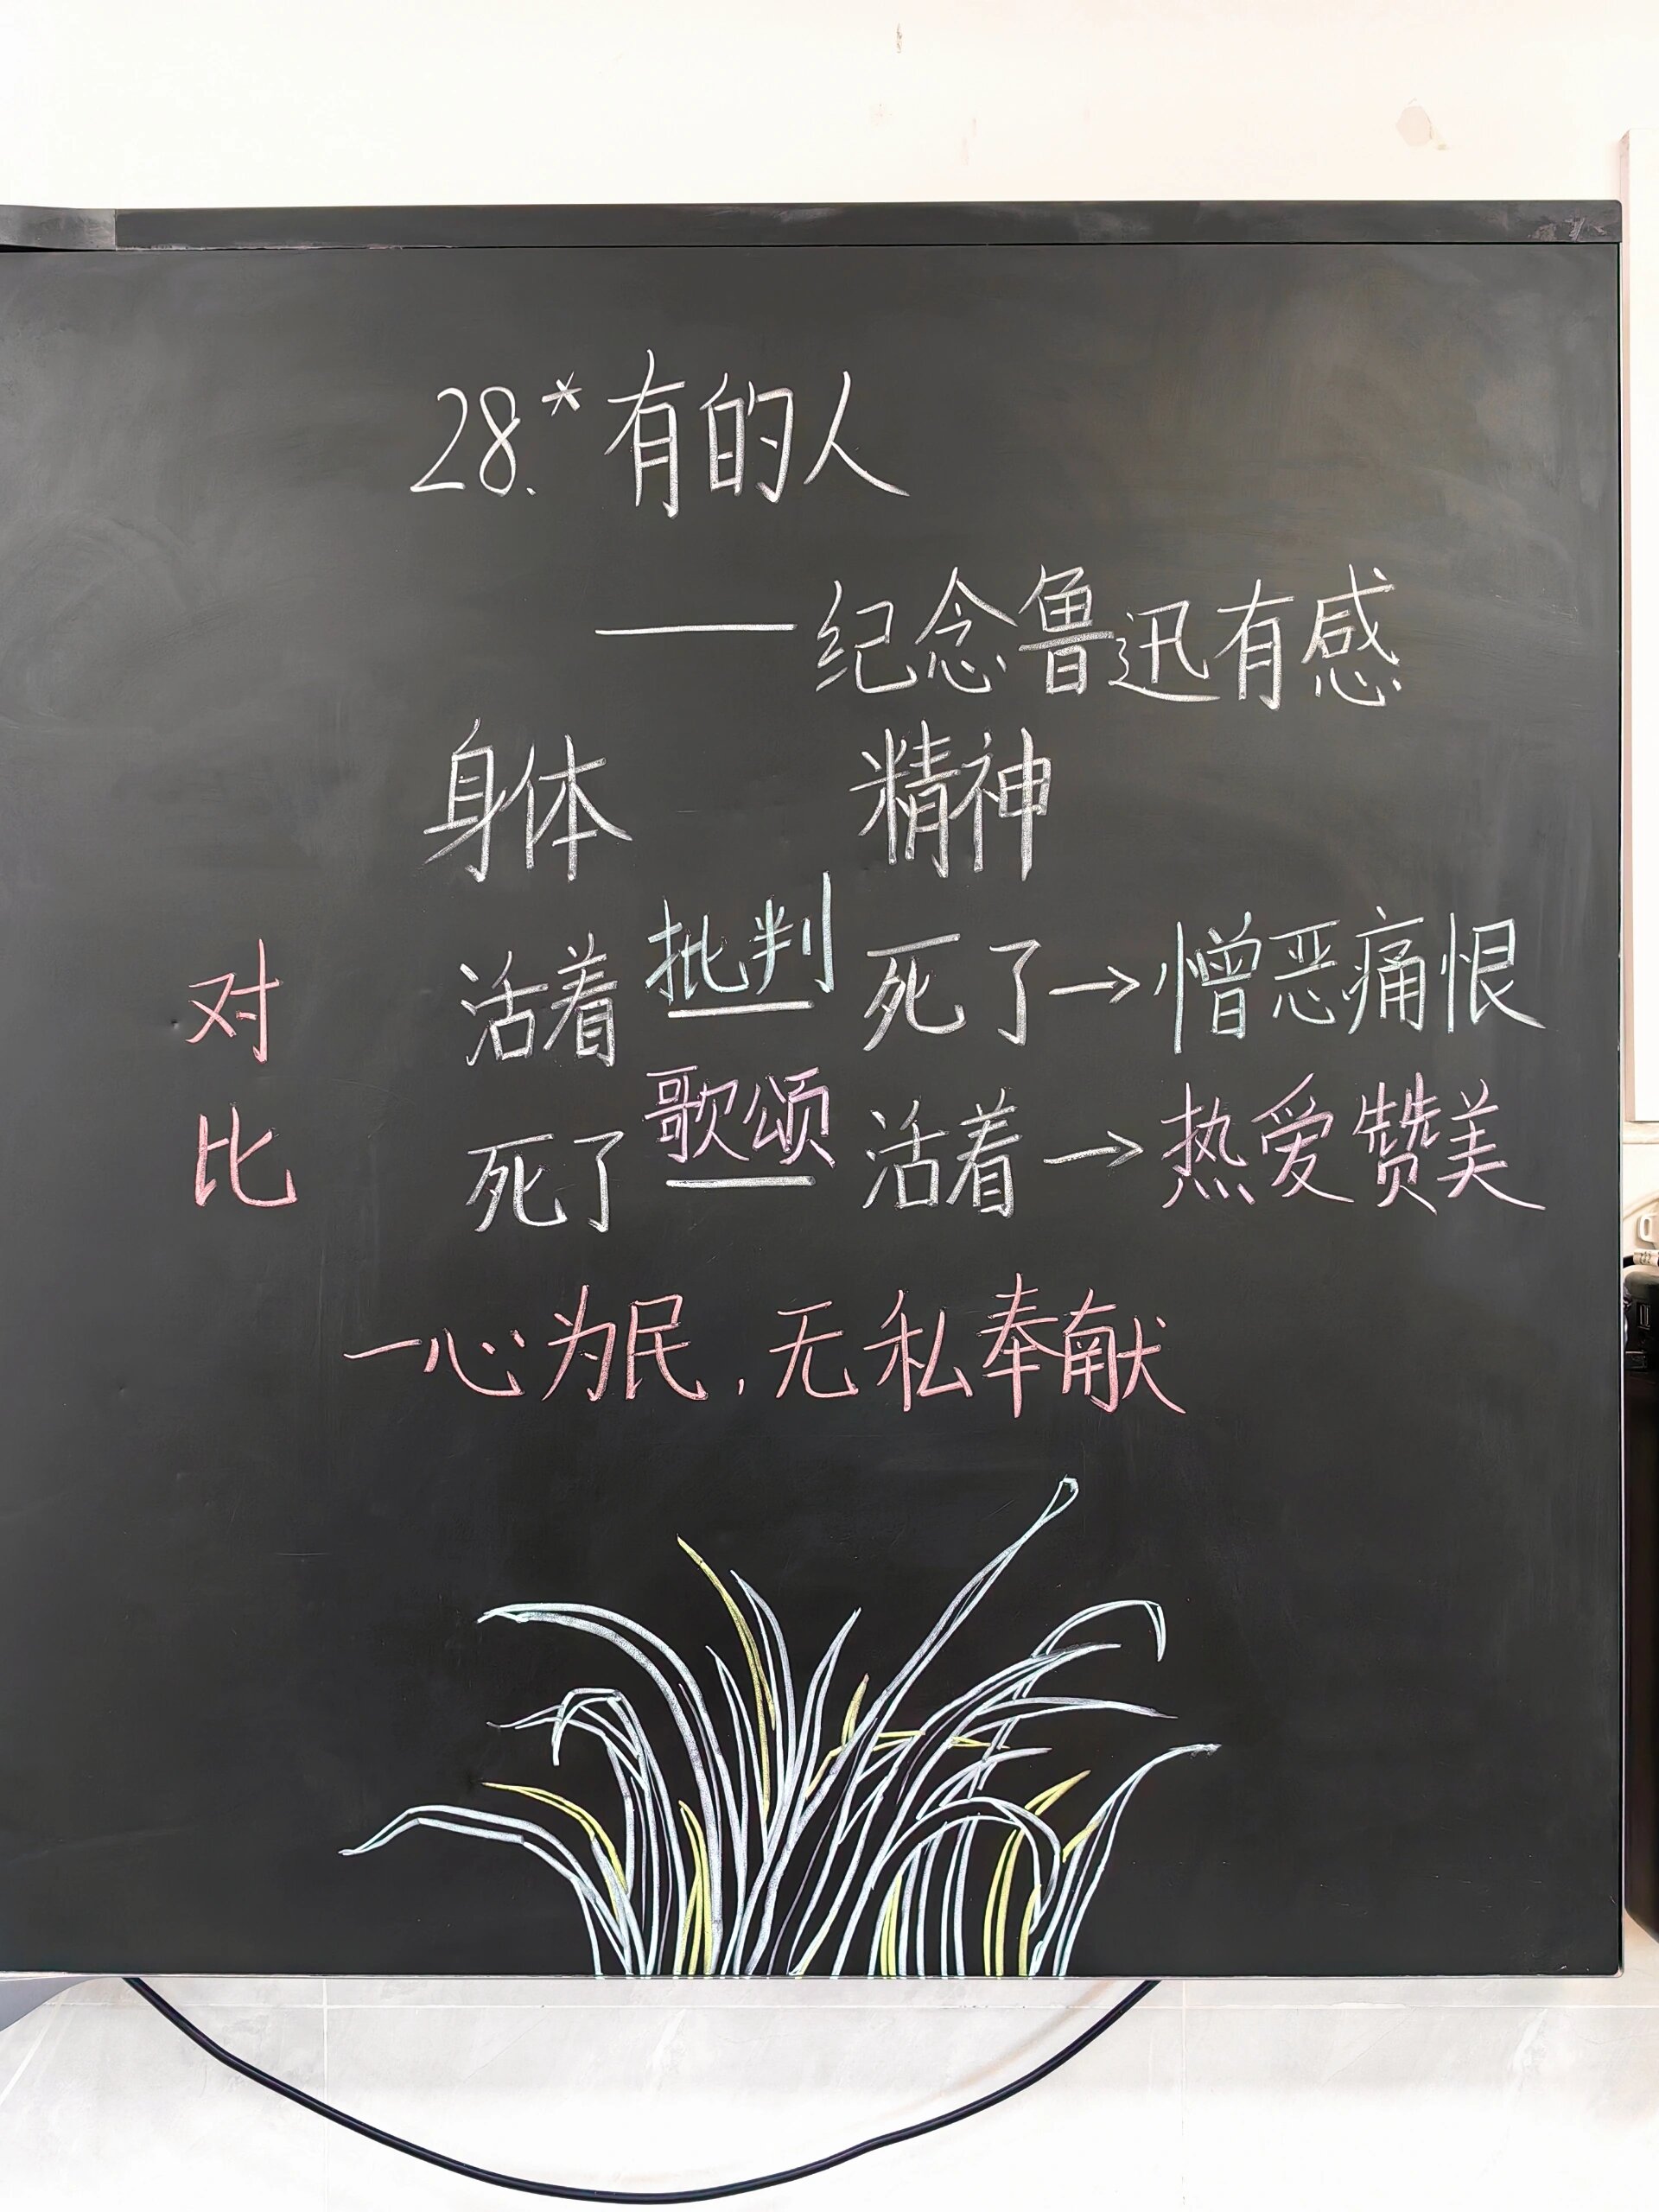 28.*有的人
——纪念鲁迅有感
身体 精神
对比
活着 批判 死了→憎恶痛恨
死了 歌颂 活着→热爱赞美
一心为民,无私奉献